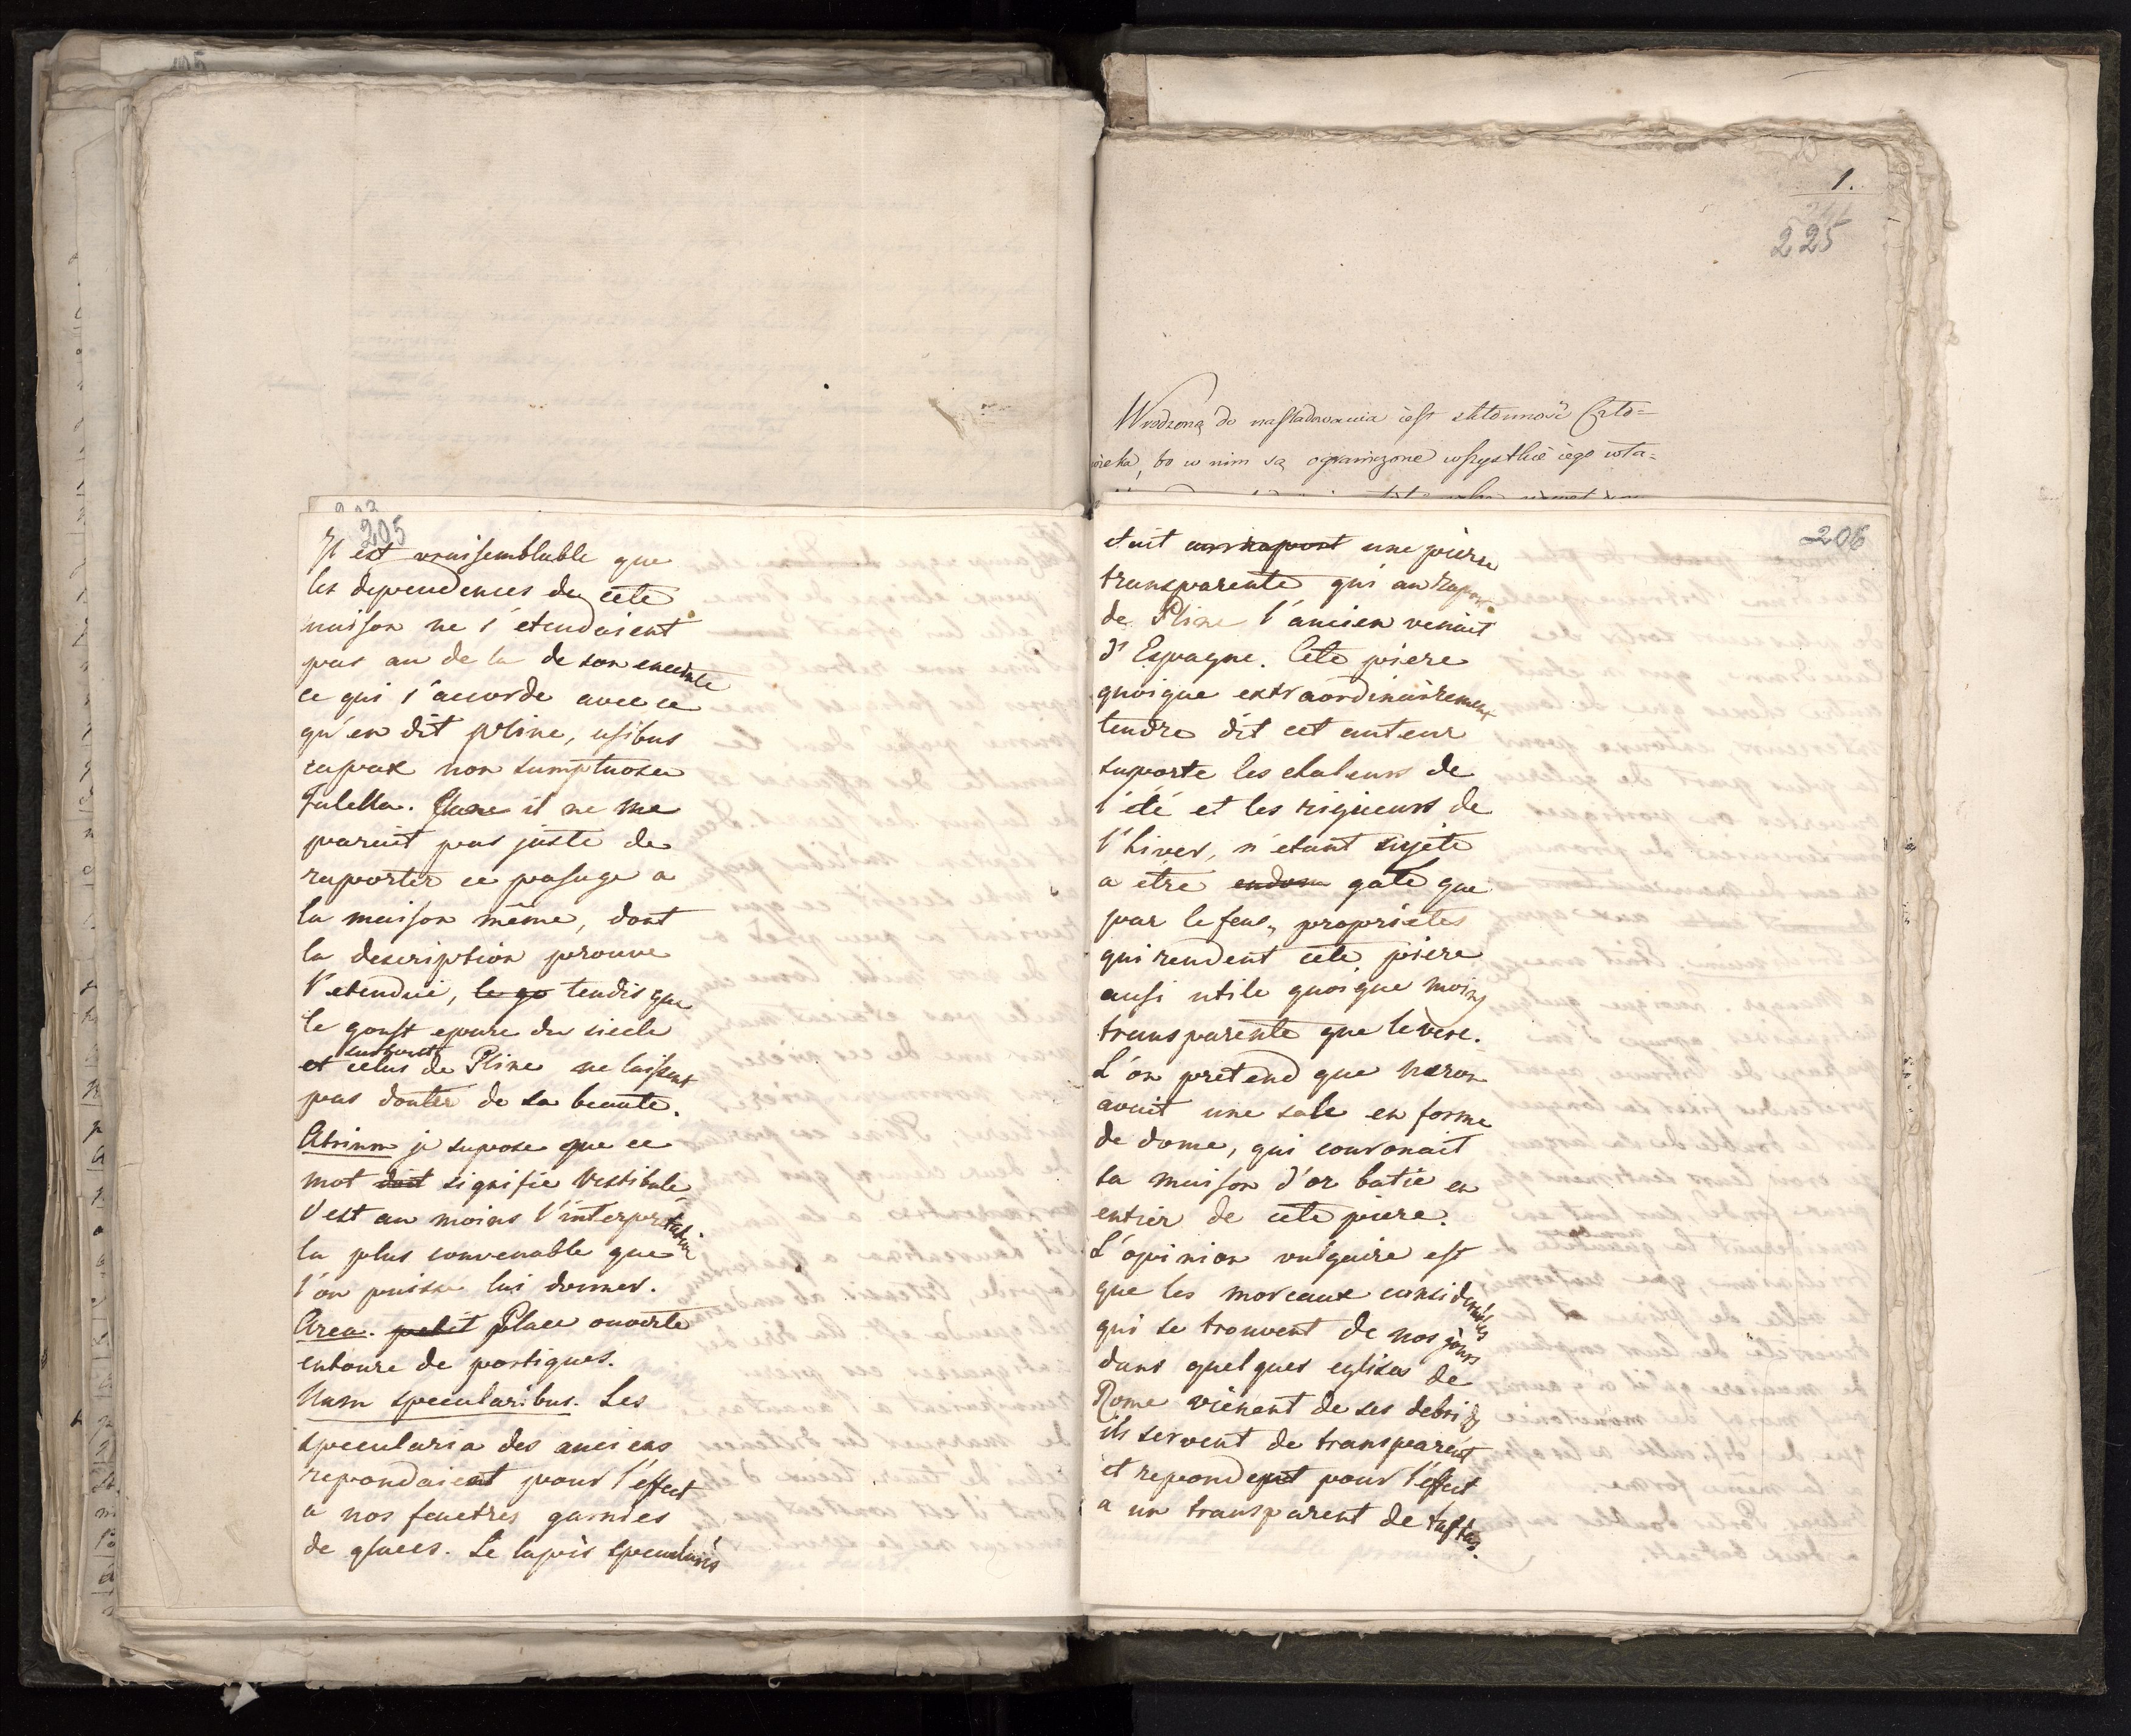 205
Il est vraisemblable que
les dependences de cete
maison ne s'etendaient
pas au de la de son enceinte
ce qui s'accorde avec ce
qu'en dit pline, usibus
capax non sumptuosa
Tutella. il ne me
parait pas juste de
raporter ce pasage a
la maison même, dont
la description prouve
l'etendue, le go tendis que
le goust epure du siecle
surtout
et celui de Pline ne laissent
pas douter de sa beaute.
Atrium je supose que ce
mot doit signifie Vestibule
c'est au moins l'interpretation
la plus convenable que
l'on puisse lui donner.
Area. petit Place ouverte
entoure de portiques.
Nam specularibus. Les
specularia des anciens
repondaient pour l'effect
a nos fenetres garnies
de glaces. Le lapis specularis
1.
225
Wrodzoną do naśladowania iest skłonność Czło=
wieka, bo w nim są ograniczone wszystkie iego wła=
206
etait une piere
transparente qui au raport
de Pline l'ancien venait
d'Espagne. Cete piere
quoique extraordinairement
tendre dit cet auteur
suporte les chaleurs de
l'été et les rigueurs de
l'hiver, n'etant sujete
a être gaté que
par le feu, proprietes
qui rendent cete piere
ausi utile quoique moins
transparente que le vere.
L'on pretend que neron
avait une sale en forme
de dome, qui couronait
sa maison d'or batie en
entier de cete piere.
L'opinion vulgaire est
que les morceaux considerables
qui se trouvent de nos jours
dans quelques eglises de
Rome vienent de ses debris
ils servent de transparent
et repondent pour l'effect
a un transparent de taftas.